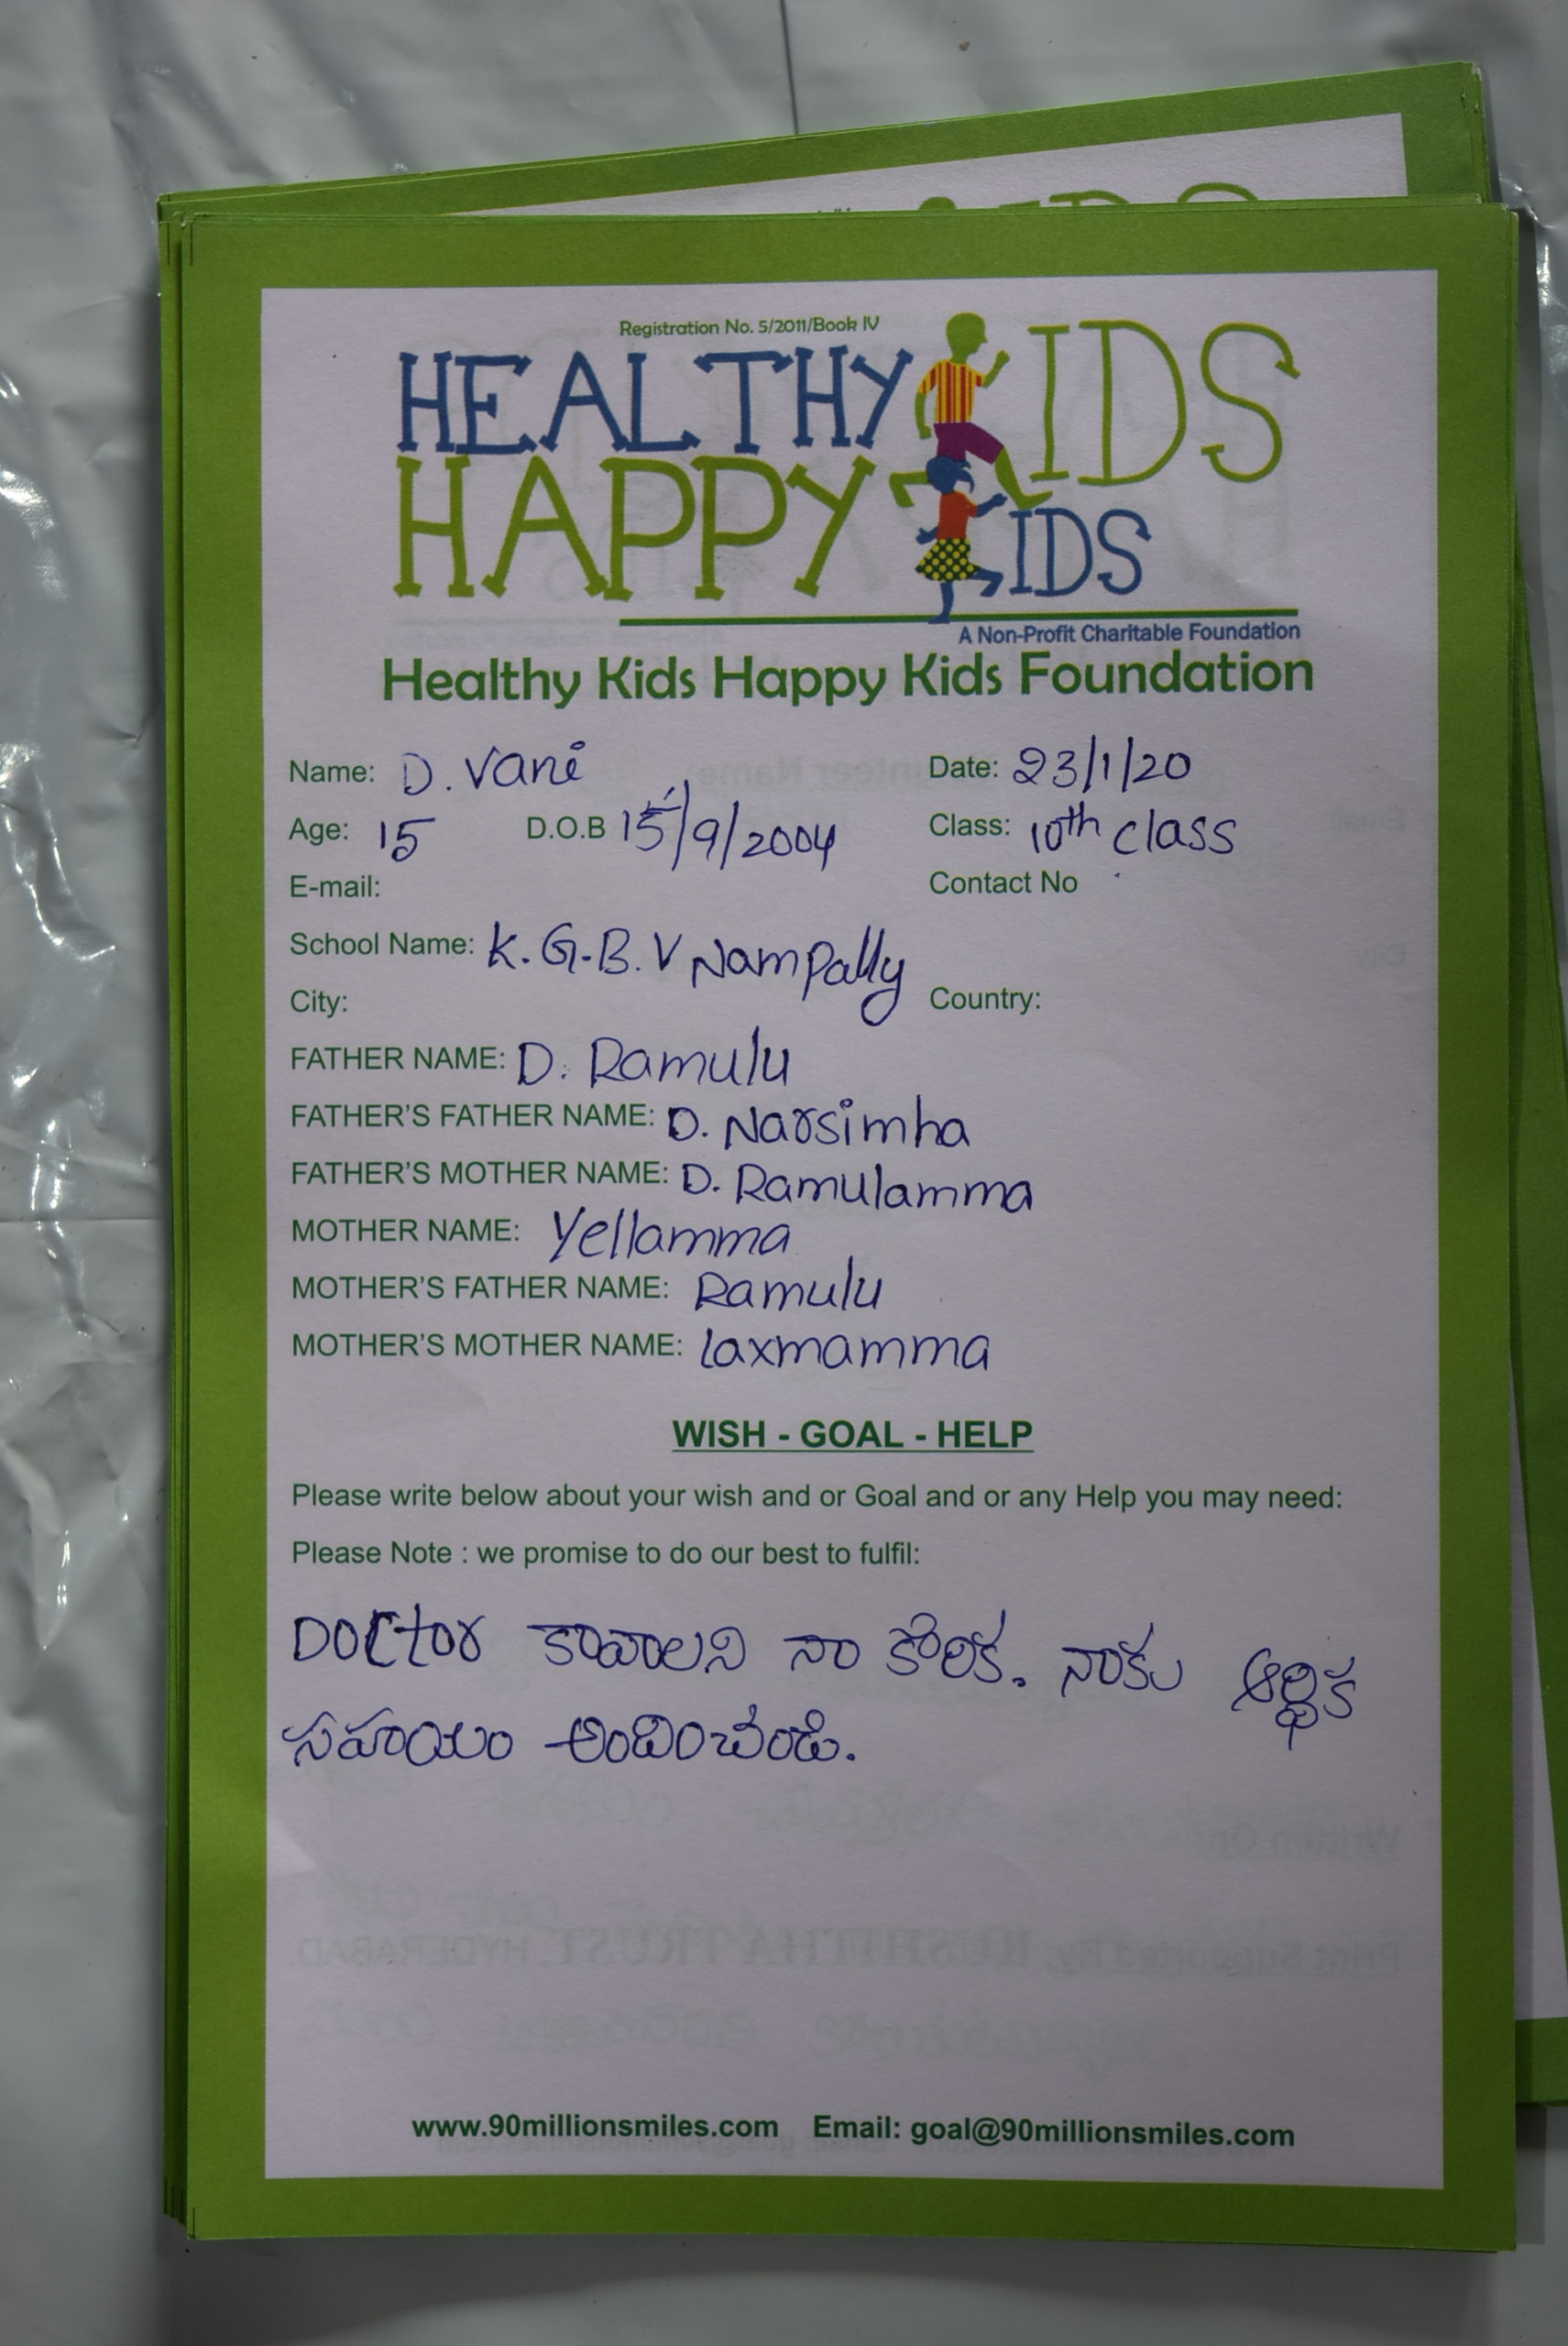 Registration No. 5/2011/Book IV
HEALTHY KIDS
HAPPY KIDS
A Non-Profit Charitable Foundation
Healthy Kids Happy Kids Foundation
Name: D. Vani Date: 23/1/20
Age: 15 D.O.B 15/9/2004 Class: 10th class
E-mail: Contact No
School Name: K.G.B.V Nampally
City: Country:
FATHER NAME: D. Ramulu
FATHER'S FATHER NAME: D. Narsimha
FATHER'S MOTHER NAME: D. Ramulamma
MOTHER NAME: Yellamma
MOTHER'S FATHER NAME: Ramulu
MOTHER'S MOTHER NAME: Laxmamma
WISH - GOAL - HELP
Please write below about your wish and or Goal and or any Help you may need:
Please Note : we promise to do our best to fulfil:
Doctor కావాలని నా కోరిక. నాకు ఆర్థిక
సహయం అందించేండి.
www.90millionsmiles.com Email: goal@90millionsmiles.com